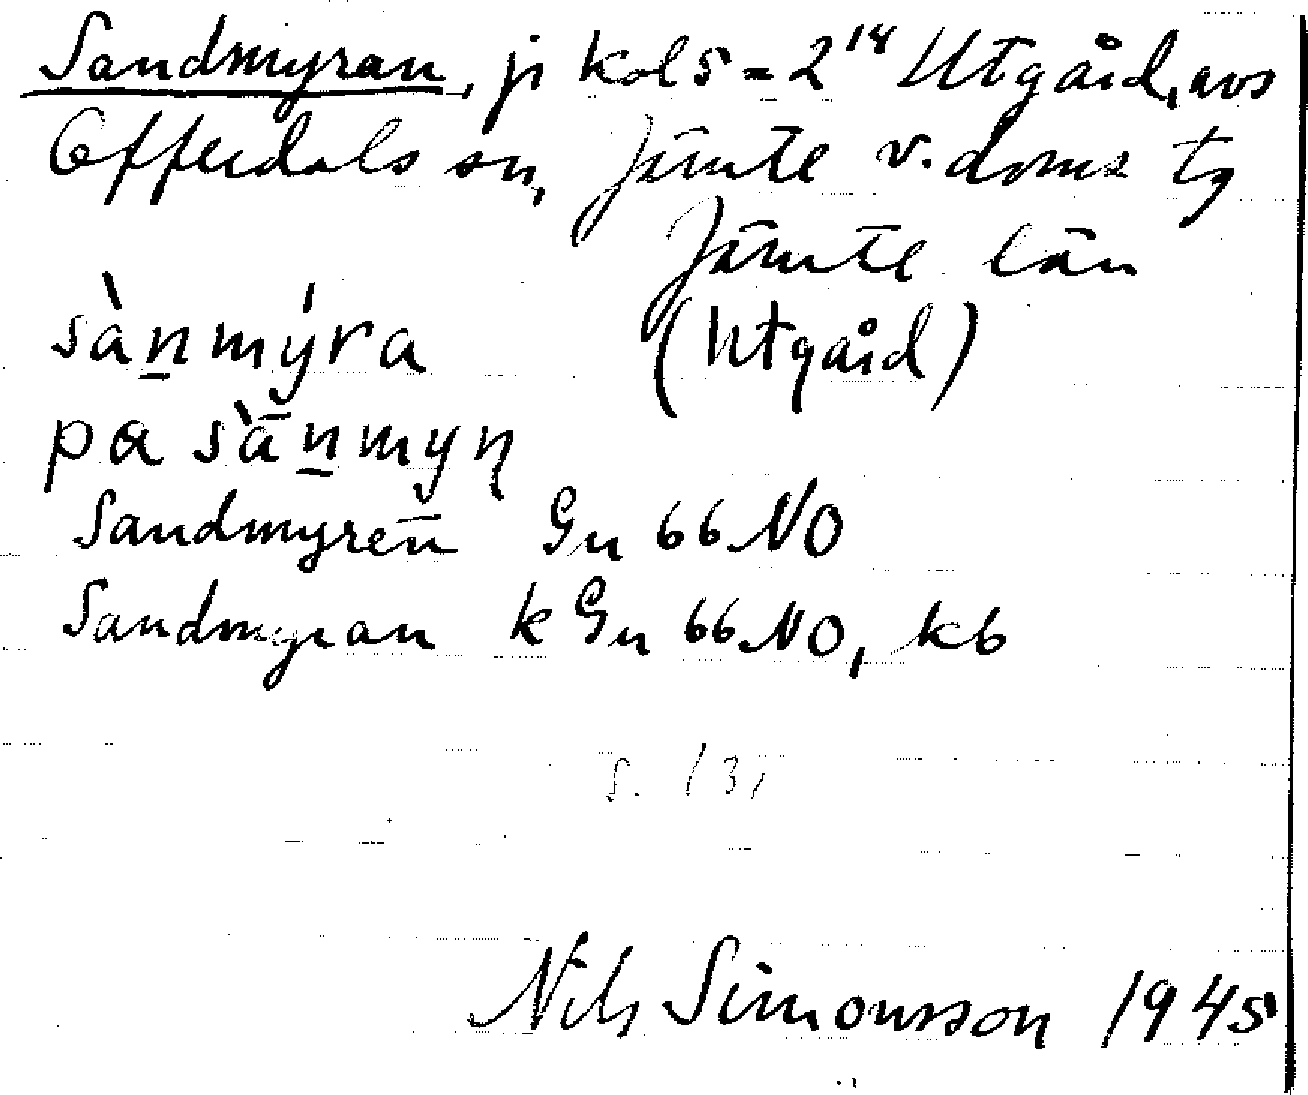 Sandmyran, ji kols = 2¹⁴ Utgård, avs
Offerdals sn, Jämte v. doms tg
Jämte län
sànmýra (Utgård)
pa sā̀nmyn̥
Sandmyren Gn 66 NO
Sandmyran k Gn 66 NO, kb
s. 131
Nils Simonsson 1945